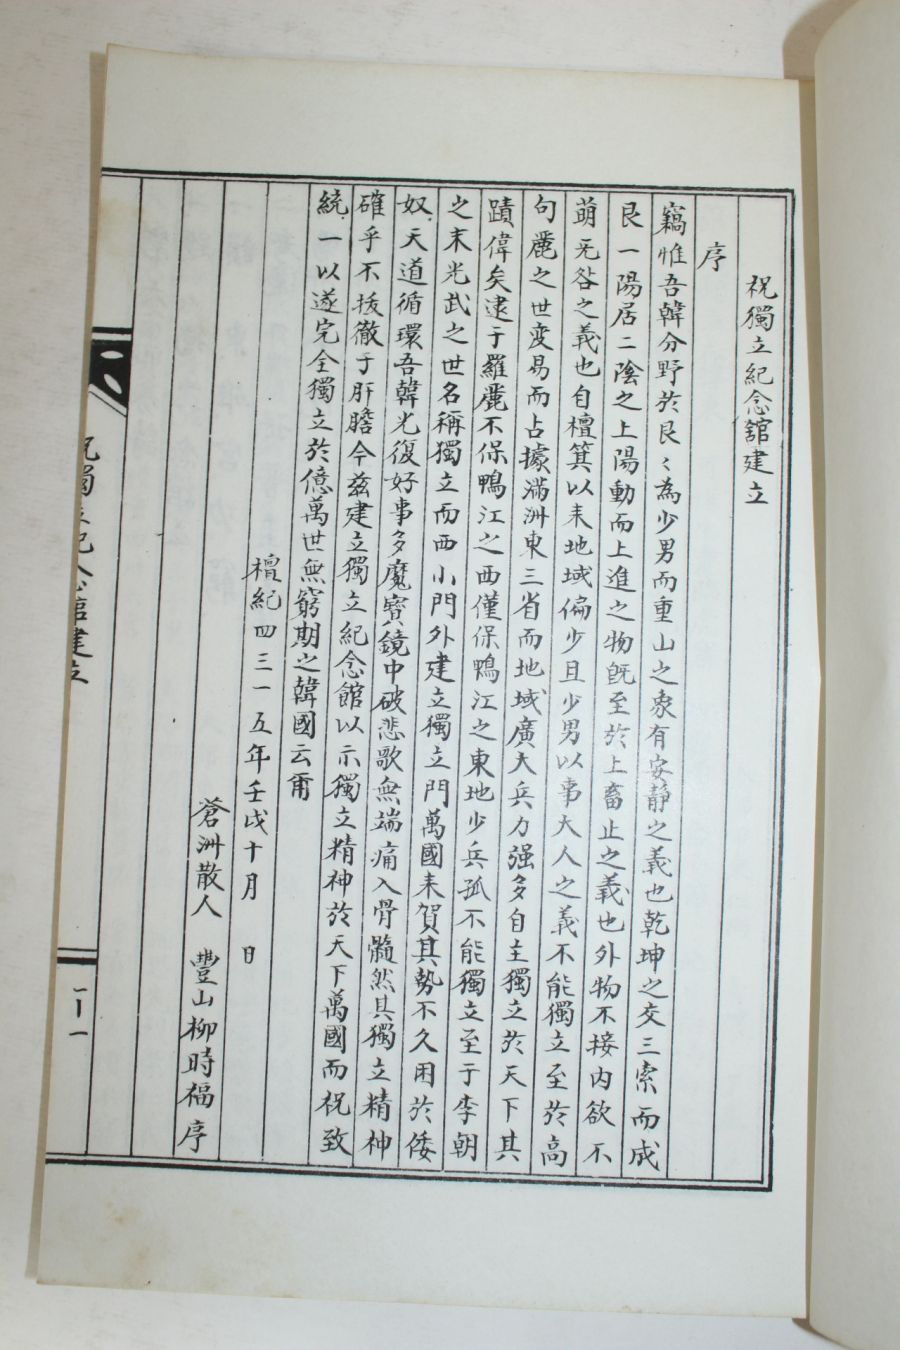 祝獨立紀念舘建立
序
竊惟吾韓分野於艮〻為少男而重山之象有安静之義也乾坤之交三索而成
艮一陽居二陰之上陽動而上進之物既至於上畜止之義也外物不接内欲不
萌无咎之義也自檀箕以来地域偏少且少男以事大人之義不能獨立至於高
句麗之世変易而占據滿洲東三省而地域廣大兵力强多自主獨立於天下其
蹟偉矣逮于羅麗不保鴨江之西僅保鴨江之東地少兵孤不能獨立至于李朝
之末光武之世名稱獨立而西小門外建立獨立門萬國来賀其勢不久困於倭
奴天道循環吾韓光復好事多魔寶鏡中破悲歌無端痛入骨髓然其獨立精神
確乎不拔徹于肝膽今玆建立獨立紀念館以示獨立精神於天下萬國而祝致
統一以遂完全獨立於億萬世無窮期之韓國云爾
檀紀四三一五年壬戌十月 日
蒼洲散人 豐山柳時福序
祝獨立紀念舘建立
一ー一